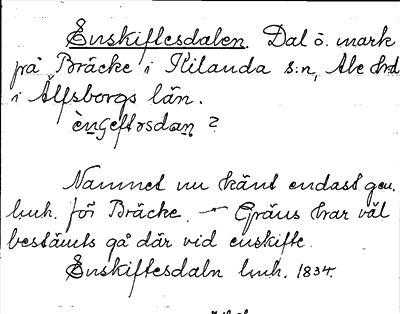 Enskiftesdalen. Dal ö. mark
på Bräcke i Kilanda s:n, Ale hd
i Älfsborgs län.
ènʃeftəsdaṉ ?
Namnet nu känt endast gm.
luh. för Bräcke. — Gräns har väl
bestämts gå där vid enskifte.
Enskiftesdaln luh. 1834.